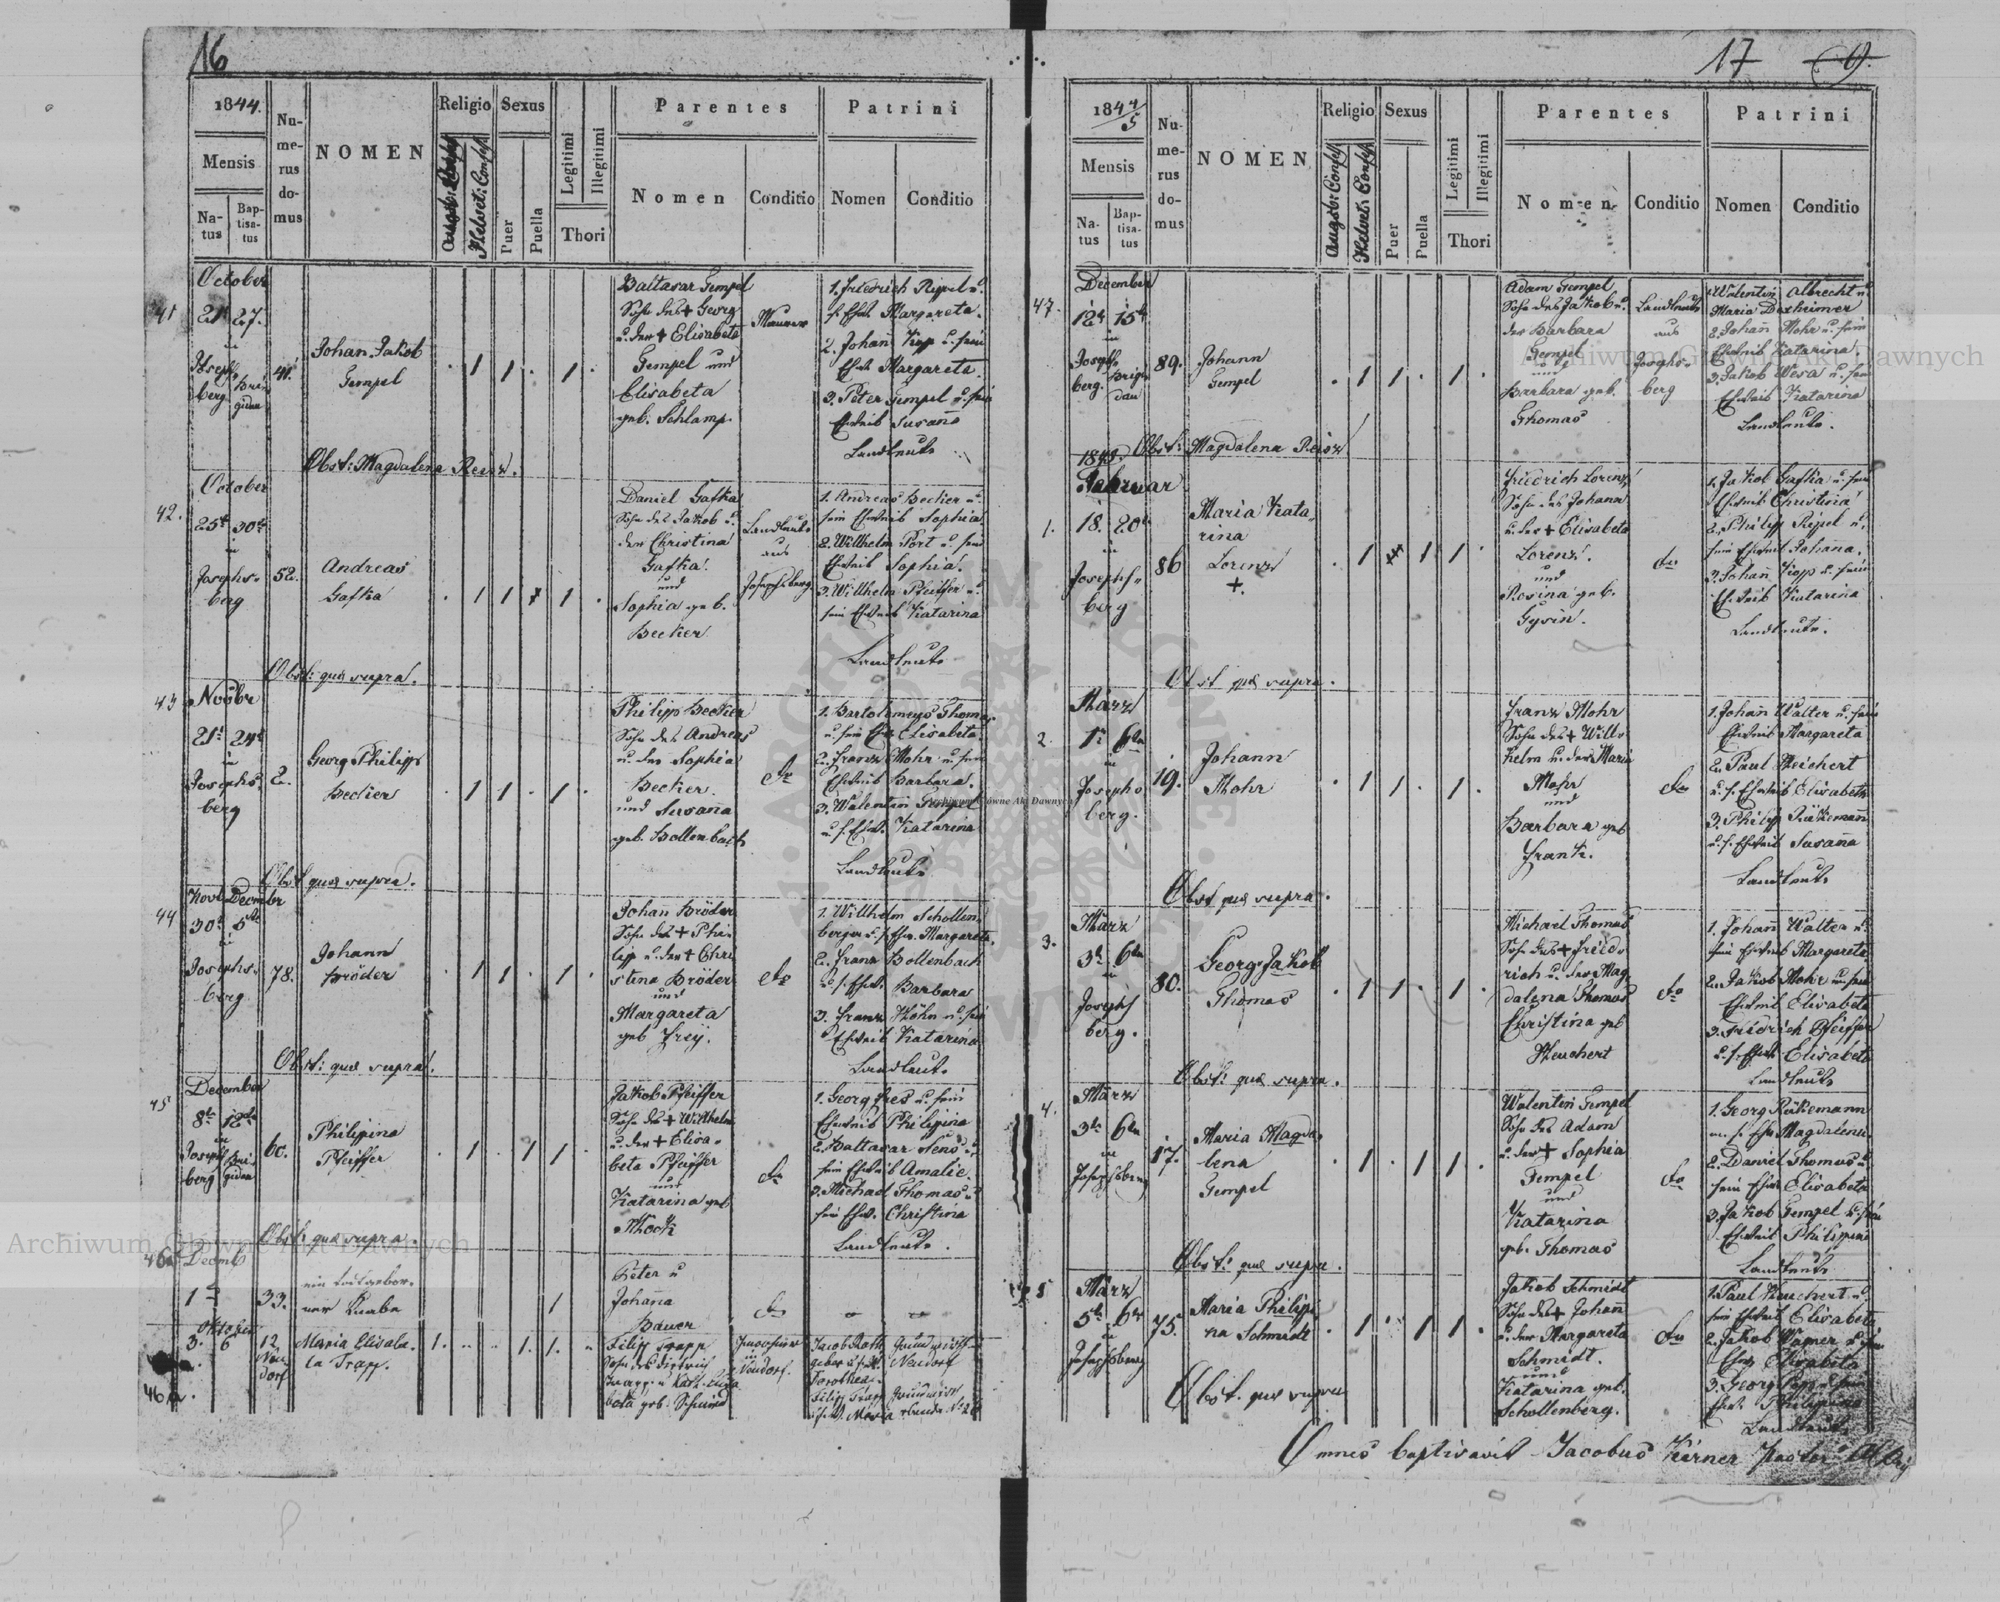 16
1844.
Mensis
Na-
tus
Bap-
tisa-
tus
Nu-
me-
rus
do-
mus
NOMEN
Religio
Helvet: Confess
Sexus
Puer
Puella
Legitimi
Illegitimi
Thori
Parentes
Nomen
Conditio
Patrini
Nomen
Conditio
41
October
21t 27.
in
Josephs
berg
41.
Johan Jakob
Gempel
1 1 1
Baltasar Gempel
Sohn des + Georg
u. der + Elisabeta
Gempel und
Elisabeta
geb. Schlamp
Maurer
1. Friedrich Rippel u.
s. Ehw. Margareta.
2. Johañ Kopp u. sein
Ehw. Margareta.
3. Peter Gempel u. sein
Ehweib Susaña
Landleute
Obst: Magdalena Reisz.
42.
October
25t 30t
in
Josephs-
berg
52.
Andreas
Gafka
1 1 1
Daniel Gafka
Sohn des Jakob u.
der Christina
Gafka.
und
Sophia geb.
Becker
Landleute
aus
Josephsberg
1. Andreas Becker u.
sein Ehweib Sophia
2. Willhelm Port u. sein
Ehweib Sophia.
3. Willhelm Pfeiffer u.
sein Ehweib Katarina
Landleute
Obst: quæ supra.
43
Novbr
21t 24t
in
Josephs-
berg
2.
Georg Philipp
Becker
1 1 1
Philipp Becker
Sohn des Andreas
u. der Sophia
Becker.
und Susaña
geb. Bollenbach
do
1. Bartolomeus Thomas
u. sein Ehw. Elisabeta.
2. Franz Mohr u. sein
Ehweib Barbara.
3. Walentin Gempel
u. s. Ehw. Katarina
Landleute
Obst quæ supra.
44
Novb Decembr
30t 5t
in
Josephs-
berg
78.
Johann
Bröder
1 1 1
Johan Bröder
Sohn des + Phi-
lipp u. der + Chri
stina Bröder
und
Margareta
geb Frey.
do
1. Willhelm Schollen
berger u. s. Ehw. Margareta.
2. Franz Bollenbach
u. s. Ehw. Barbara
3. Franz Höhn u. sein
Ehweib Katarina
Landleute
Obst: quæ supra.
45
December
8t 12t
in
Josephs
berg
60.
Philippina
Pfeiffer
1 1 1
Jakob Pfeiffer
Sohn des + Willhelm
u. der + Elisa-
beta Pfeiffer
und
Katarina geb
Mock
do
1. Georg Fres u. sein
Ehweib Philipina
2. Baltasar Sens u.
sein Ehweib Amalie.
3. Michael Thomas u.
sein Ehw. Christina
Landleute.
Obst: quæ supra.
46a
Decemb
1
33.
ein todtgebor-
ner Knabe
1
Peter u
Johaña
Bauer
do
Oktober
3. 6
12
Neu
dorf
Maria Elisabe-
ta Trapp.
1. 1. 1.
Filip Trapp
Sohn des Dietrich
Trapp u. Kath. Elisa
beta geb. Schmid
Inwohner
in
Neudorf.
Jacob Roth
Dorothea.
Filip Trapp
Grundwirth
Neudorf
46a.
17
1844/5
Mensis
Na-
tus
Bap-
tisa-
tus
Nu-
me-
rus
do-
mus
NOMEN
Religio
Augsb: Confess
Helvet: Confess
Sexus
Puer
Puella
Legitimi
Illegitimi
Thori
Parentes
Nomen
Conditio
Patrini
Nomen
Conditio
47.
December
12t 15t
in
Josephs-
berg.
89.
Johann
Gempel
1 1 1
Adam Gempel
Sohn des Jakob u.
der Barbara
Gempel
und
Barbara geb.
Thomas
Landleute
aus
Josephs-
berg
1. Walentin Albrecht u.
Maria Dexheimer
2. Johañ Mohr u. sein
Ehweib Katarina
3. Jakob Wesa u. sein
Ehweib Katarina
Landleute.
Obst: Magdalena Reisz
1.
1845.
Februar
18. 20t
in
Josephs-
berg
86
Maria Kata-
rina
Lorenz
+.
1 1 1
Friedrich Lorenz
Sohn des Johann
u. der + Elisabeta
Lorenz.
und
Rosina geb.
Gysin.
do
1. Jakob Gafka u. sein
Ehweib Christina
2. Philipp Rippel u.
sein Ehweib Johaña.
3. Johañ Kopp u. sein
Ehweib Katarina
Landleute.
Obst quæ supra.
2.
März
1t 6ten
in
Josephs
berg.
19.
Johann
Mohr
1 1 1
Franz Mohr
Sohn des + Will-
helm u. der Maria
Mohr
und
Barbara geb
Frank.
do
1. Johañ Walter u. sein
Ehweib Margareta
2. Paul Heichert
u. s. Ehweib Elisabeta
3. Philipp Rükemañ
u. s. Ehweib Susaña
Landleute
Obst quæ supra.
3.
März
3t 6ten
in
Josephs
berg.
80.
Georg Jakob
Thomas
1 1 1
Michael Thomas
Sohn des + Fried-
rich u. der Mag
dalena Thomas
Christina geb
Heuchert
do
1. Johañ Walter u.
sein Ehweib Margareta
2. Jakob Mohr u. sein
Ehweib Elisabeta
3. Friedrich Pfeiffer
u. s. Ehw. Elisabeta
Landleute
Obst: quæ supra.
4.
März
3t 6ten
in
Josephsberg
17.
Maria Magda-
lena
Gempel
1 1 1
Walentin Gempel
Sohn des Adam
u. der + Sophia
Gempel
und
Katarina
geb. Thomas
do
1. Georg Rükemann
u. s. Ehw. Magdalena.
2. Daniel Thomas u.
sein Ehw. Elisabeta
3. Jakob Gempel u. sein
Ehweib Philippina
Landleute
Obst: quæ supra.
5
März
5t 6ten
in
Josephsberg
75.
Maria Philippi
na Schmidt
1 1 1
Jakob Schmidt
Sohn des + Johañ
u. der Margareta
Schmidt.
und
Katarina geb.
Schollenberg.
do
1. Paul Heuchert u.
sein Ehweib Elisabeta
2. Jakob Wagner u. sein
Ehw. Elisabeta
3. Georg Kopp u. sein
Ehw. Philipina
Landleute
Obst. quæ supra
Omnes baptisavit Jacobus Kärner Pastor
Archiwum Główne Akt Dawnych
Archiwum Główne Akt Dawnych
Archiwum Główne Akt Dawnych